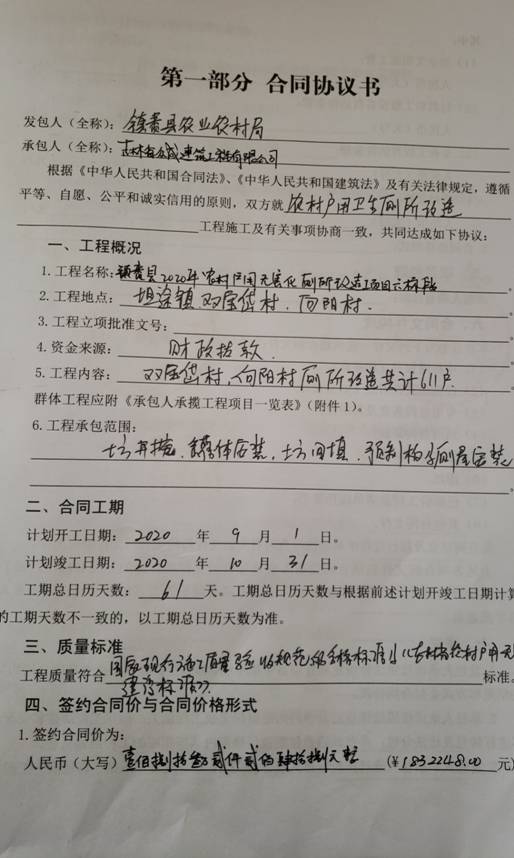 第一部分 合同协议书
发包人（全称）：镇赉县农业农村局
承包人（全称）：吉林省 建筑工程有限公司
根据《中华人民共和国合同法》、《中华人民共和国建筑法》及有关法律规定，遵循
平等、自愿、公平和诚实信用的原则，双方就 农村户用卫生厕所改造
工程施工及有关事项协商一致，共同达成如下协议：
一、工程概况
1.工程名称：镇赉县2020年农村户用无害化厕所改造项目六标段。
2.工程地点：坦途镇双宝岱村、向阳村.
3.工程立项批准文号：
4.资金来源：财政拨款.
5.工程内容：双宝岱村、向阳村厕所改造共计611户.
群体工程应附《承包人承揽工程项目一览表》（附件1）。
6.工程承包范围：
土方开挖、罐体安装、土方回填、预制构 厕屋安装
。
二、合同工期
计划开工日期：2020年9月1日。
计划竣工日期：2020年10月31日。
工期总日历天数：61天。工期总日历天数与根据前述计划开竣工日期计算
的工期天数不一致的，以工期总日历天数为准。
三、质量标准
工程质量符合 国家现行施工质量验收规范合格标准 《吉林省农村户用无
建设标准》. 标准。
四、签约合同价与合同价格形式
1.签约合同价为：
人民币（大写）壹佰捌拾叁万贰仟贰佰肆拾捌元整（¥1832248.00 元）